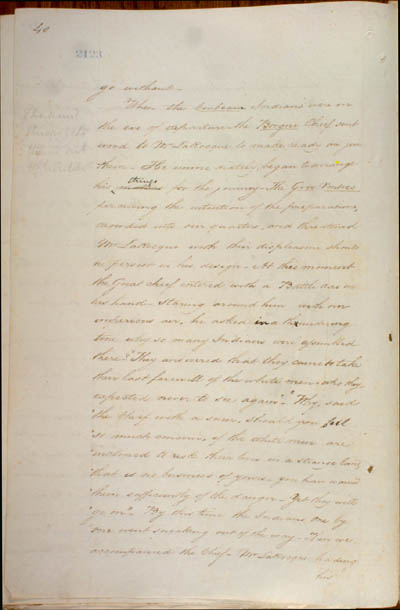 40
2123
go without –
When the Indians were on
the eve of departure the Borgne Chief sent
word to Mr LaRocque to make ready and join
them – He immediately began to arrange
things
his for the journey – The Gros Ventres
perceiving the intention of the preparations,
crowded into our quarters, and threatened
Mr LaRocque with their displeasure should
he persist in his design – At this moment
the Great Chief entered with a Battle axe in
his hand – Staring around him with an
imperious air, he asked in a thundering
tone why so many Indians were assembled
there? They answered that they came to take
their last farewell of the white men – who they
expected never to see again". Why, said
"the Chief with a sneer, should you feel
"so much concern, if the white men are
"inclined to risk their lives in a strange land
"that is no business of yours. you have warned
them sufficiently of the danger – Yet they will
"go on". By this time the Indians one by
one went sneaking out of the way – Then we
accompanied the Chief – Mr LaRocque leading
his